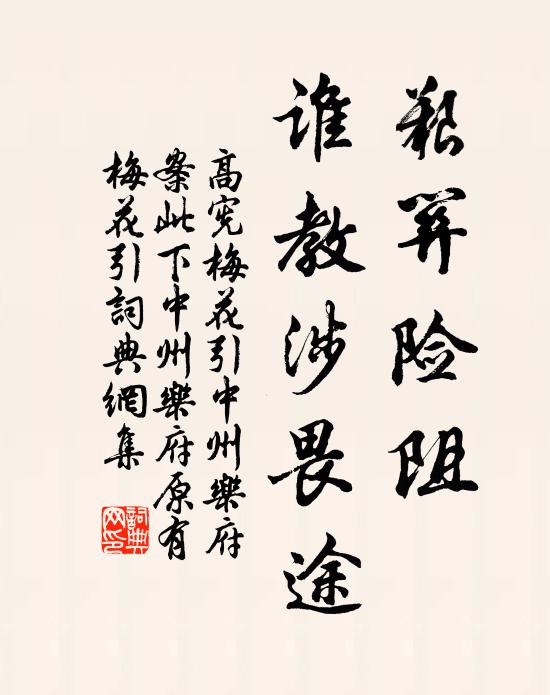 艱险阻
誰教涉畏途
高宪梅花引中州樂府
案此下中州樂府原有
梅花引詞典網集
詞典
网印